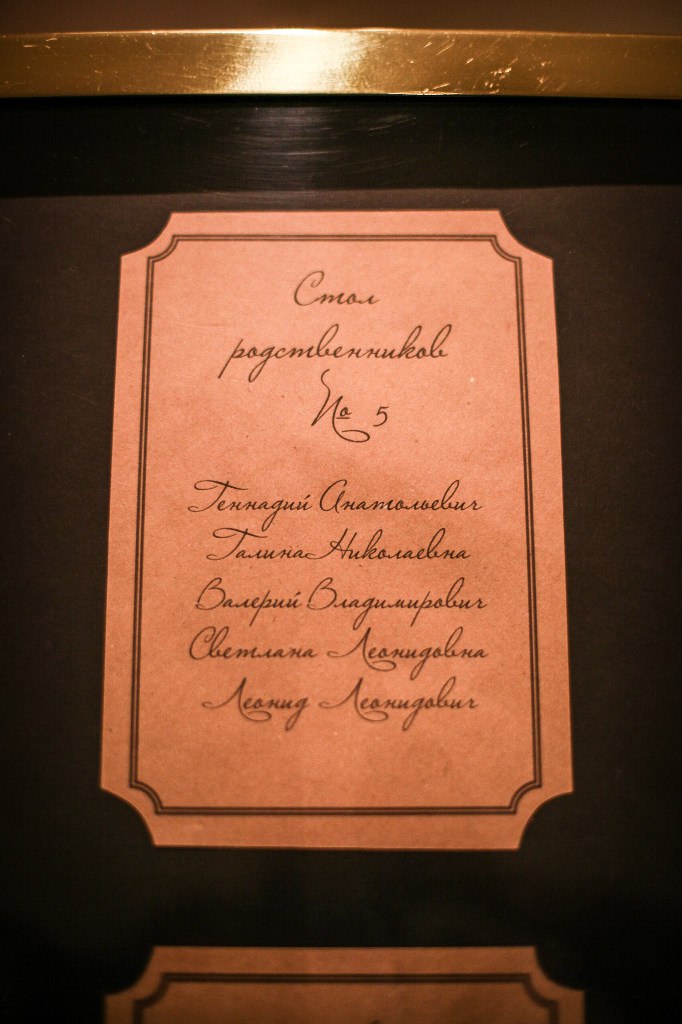 Стол
родственников
№ 5
Геннадий Анатольевич
Галина Николаевна
Валерий Владимирович
Светлана Леонидовна
Леонид Леонидович